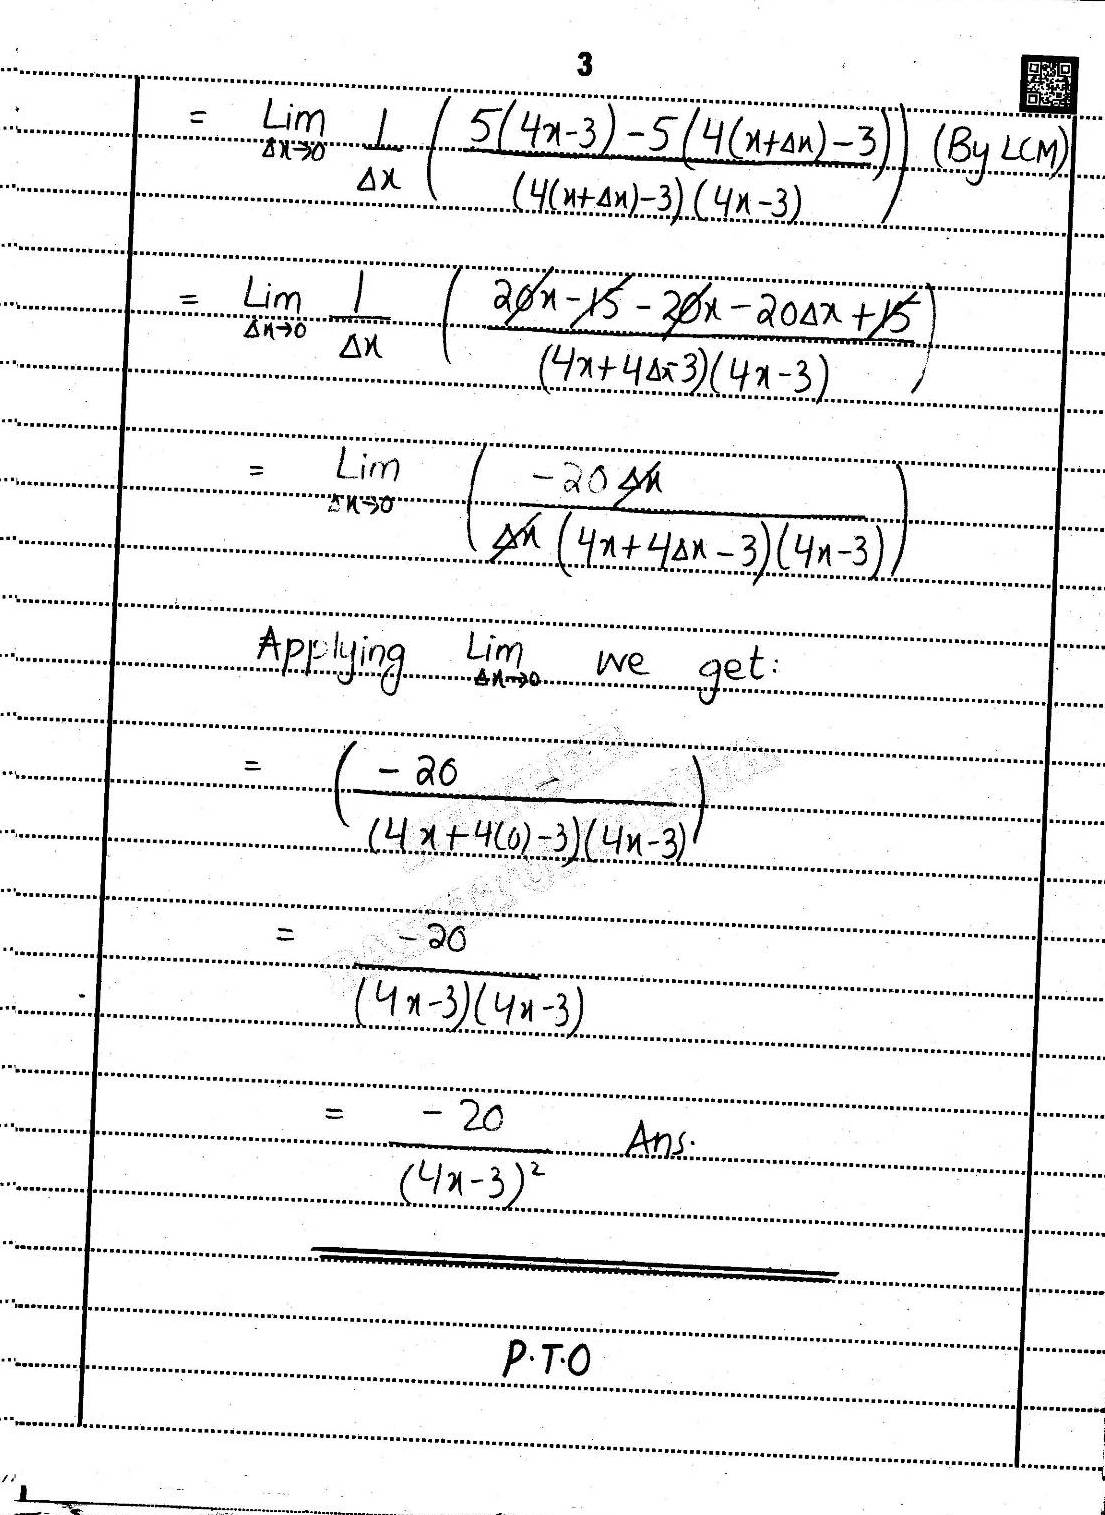 3
= Lim Δx→0 1/Δx ( 5(4x-3) - 5(4(x+Δx) - 3) / (4(x+Δx)-3)(4x-3) ) (By LCM)
= Lim Δx→0 1/Δx ( 20x - 15 - 20x - 20Δx + 15 / (4x+4Δx-3)(4x-3) )
= Lim Δx→0 ( -20 Δx / Δx (4x+4Δx-3)(4x-3) )
Applying Lim Δx→0 we get:
= ( -20 / (4x+4(0)-3)(4x-3) )
= -20 / (4x-3)(4x-3)
= -20 / (4x-3)² Ans.
P.T.O